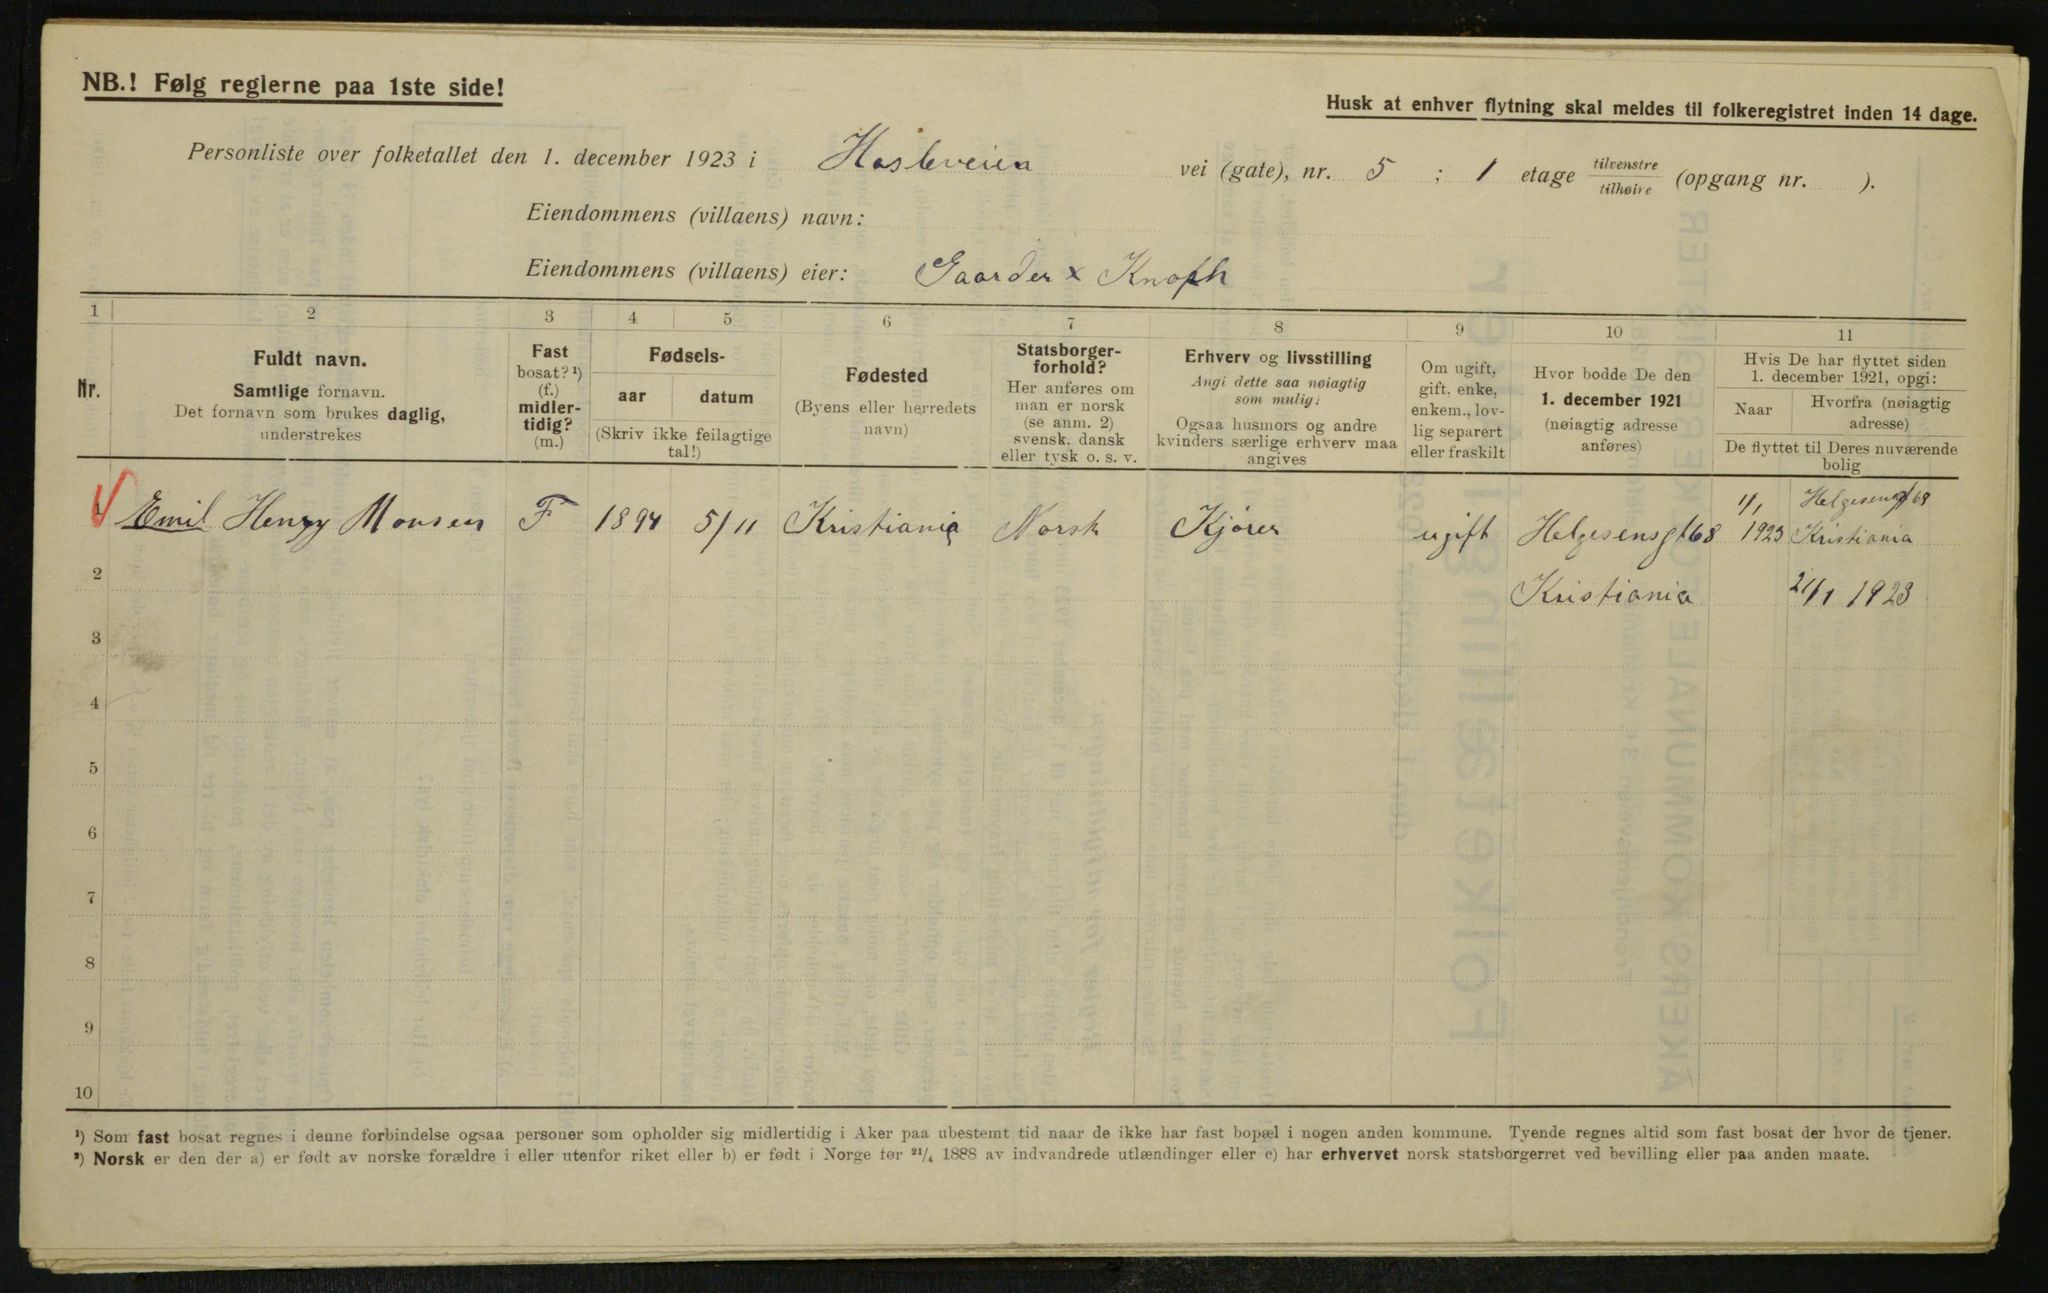 NB.! Følg reglerne paa 1ste side!
Husk at enhver flytning skal meldes til folkeregistret inden 14 dage.
Personliste over folketallet den 1. december 1923 i Hasleveien vei (gate), nr. 5 ; 1 etage tilvenstre / tilhøire (opgang nr. ).
Eiendommens (villaens) navn:
Eiendommens (villaens) eier: Gaarder x Knoph
1 2 3 4 5 6 7 8 9 10 11
Nr.
Fuldt navn.
Samtlige fornavn.
Det fornavn som brukes daglig,
understrekes
Fast
bosat? ¹)
(f.)
midler-
tidig?
(m.)
Fødsels-
aar datum
(Skriv ikke feilagtige
tal!)
Fødested
(Byens eller herredets
navn)
Statsborger-
forhold?
Her anføres om
man er norsk
(se anm. 2)
svensk, dansk
eller tysk o. s. v.
Erhverv og livsstilling
Angi dette saa nøiagtig
som mulig:
Ogsaa husmors og andre
kvinders særlige erhverv maa
angives
Om ugift,
gift, enke,
enkem., lov-
lig separert
eller fraskilt
Hvor bodde De den
1. december 1921
(nøiagtig adresse
anføres)
Hvis De har flyttet siden
1. december 1921, opgi:
Naar Hvorfra (nøiagtig
adresse)
De flyttet til Deres nuværende
bolig
1 Emil Henry Monsen F 1894 5/11 Kristiania Norsk Kjører ugift Helgesensgt 68 1/1 1923 Helgesensgt 68
Kristiania
2 Kristiania 2/1 1923
3
4
5
6
7
8
9
10
¹) Som fast bosat regnes i denne forbindelse ogsaa personer som opholder sig midlertidig i Aker paa ubestemt tid naar de ikke har fast bopæl i nogen anden kommune. Tyende regnes altid som fast bosat der hvor de tjener.
²) Norsk er den der a) er født av norske forældre i eller utenfor riket eller b) er født i Norge før ²¹/₄ 1888 av indvandrede utlændinger eller c) har erhvervet norsk statsborgerret ved bevilling eller paa anden maate.